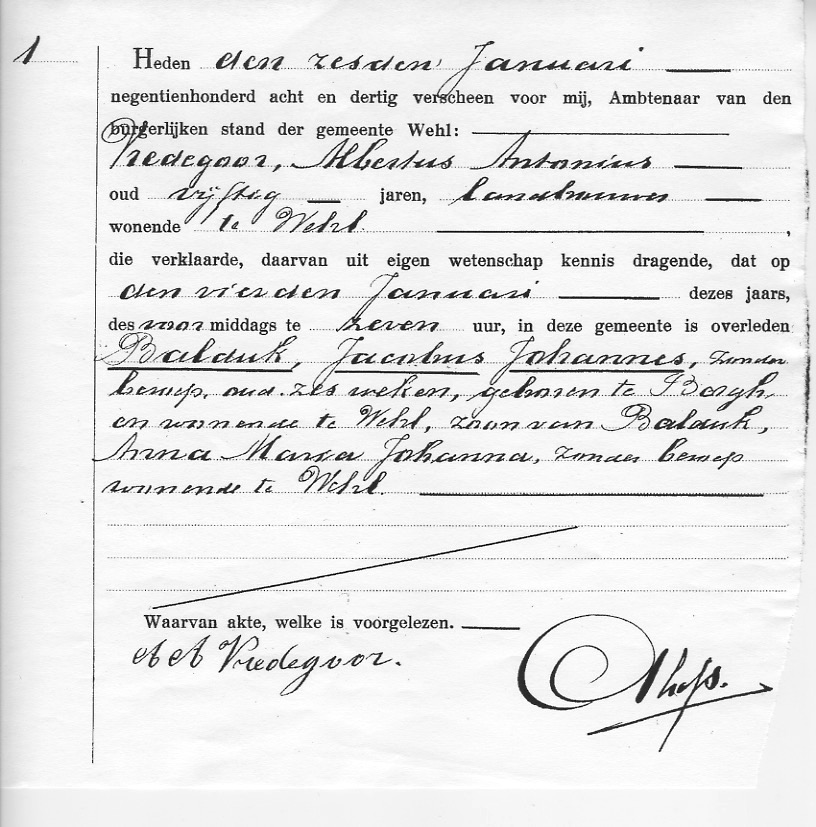 1
Heden den zesden Januari
negentienhonderd acht en dertig verscheen voor mij, Ambtenaar van den
burgerlijken stand der gemeente Wehl:
Vredegoor, Albertus Antonius
oud vijftig jaren, landbouwer
wonende te Wehl,
die verklaarde, daarvan uit eigen wetenschap kennis dragende, dat op
den vierden Januari dezes jaars,
des voor middags te zeven uur, in deze gemeente is overleden
Balduk, Jacobus Johannes, zonder
beroep, oud zes weken, geboren te Bergh
en wonende te Wehl, zoon van Balduk,
Anna Maria Johanna, zonder beroep
wonende te Wehl.
Waarvan akte, welke is voorgelezen.
A A Vredegoor.